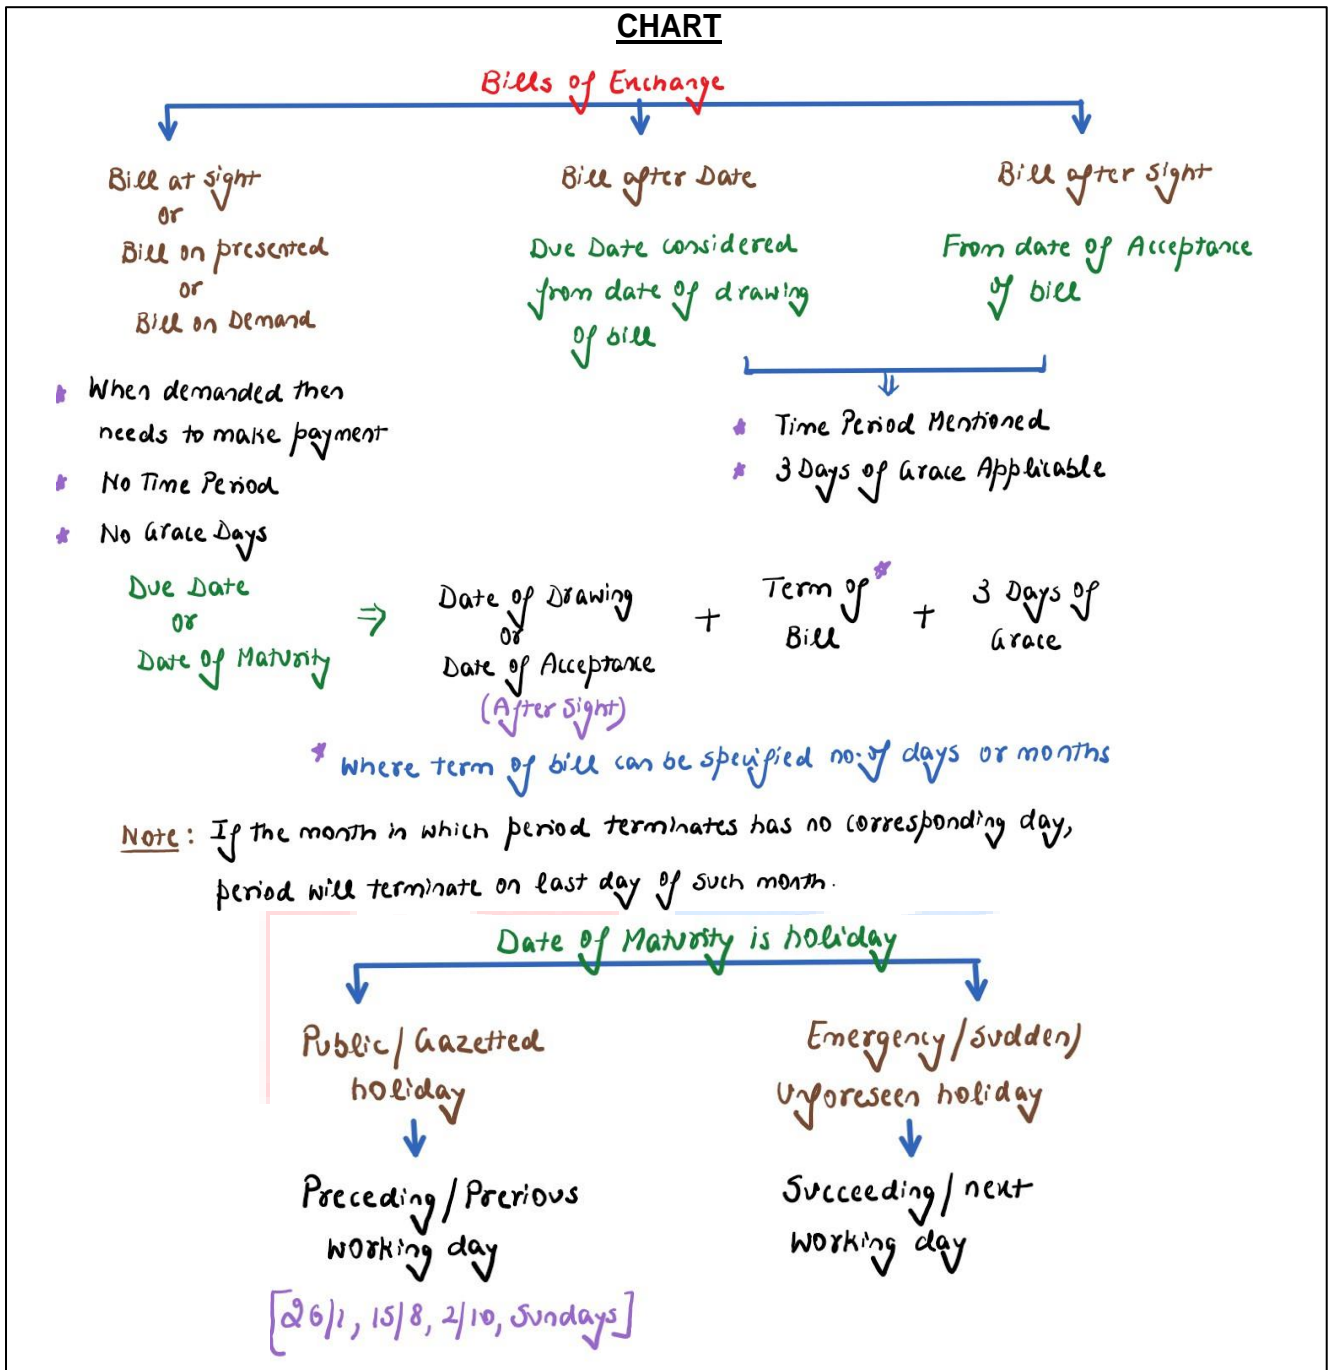 CHART
Bills of Exchange
Bill at sight
or
Bill on presented
or
Bill on Demand
Bill after Date
Due Date considered
from date of drawing
of bill
Bill after sight
From date of Acceptance
of bill
* When demanded then
needs to make payment
* No Time Period
* No Grace Days
* Time Period Mentioned
* 3 Days of Grace Applicable
Due Date
or
Date of Maturity
⇒
Date of Drawing
or
Date of Acceptance
(After sight)
+
Term of *
Bill
+
3 Days of
Grace
* where term of bill can be specified no. of days or months
Note : If the month in which period terminates has no corresponding day,
period will terminate on last day of such month.
Date of Maturity is holiday
Public / Gazetted
holiday
Preceding / Previous
working day
[26/1, 15/8, 2/10, Sundays]
Emergency / Sudden /
Unforeseen holiday
Succeeding / next
working day